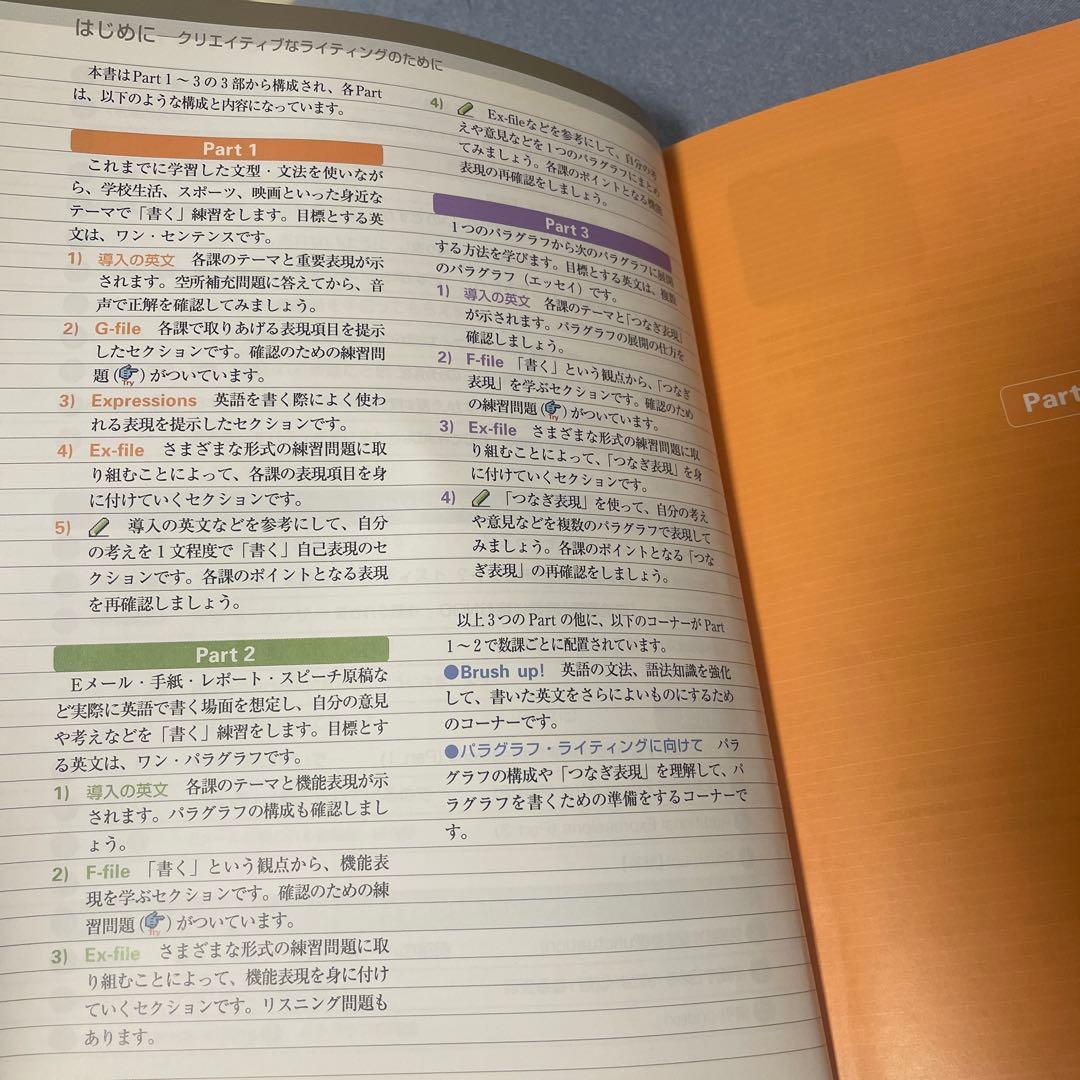 はじめに―クリエイティブなライティングのために
本書はPart 1～3の3部から構成され、各Part
は、以下のような構成と内容になっています。
Part 1
これまでに学習した文型・文法を使いなが
ら、学校生活、スポーツ、映画といった身近な
テーマで「書く」練習をします。目標とする英
文は、ワン・センテンスです。
1) 導入の英文 各課のテーマと重要表現が示
されます。空所補充問題に答えてから、音
声で正解を確認してみましょう。
2) G-file 各課で取りあげる表現項目を提示
したセクションです。確認のための練習問
題(Try)がついています。
3) Expressions 英語を書く際によく使わ
れる表現を提示したセクションです。
4) Ex-file さまざまな形式の練習問題に取
り組むことによって、各課の表現項目を身
に付けていくセクションです。
5) 導入の英文などを参考にして、自分
の考えを1文程度で「書く」自己表現のセ
クションです。各課のポイントとなる表現
を再確認しましょう。
Part 2
Eメール・手紙・レポート・スピーチ原稿な
ど実際に英語で書く場面を想定し、自分の意見
や考えなどを「書く」練習をします。目標とす
る英文は、ワン・パラグラフです。
1) 導入の英文 各課のテーマと機能表現が示
されます。パラグラフの構成も確認しまし
ょう。
2) F-file 「書く」という観点から、機能表
現を学ぶセクションです。確認のための練
習問題(Try)がついています。
3) Ex-file さまざまな形式の練習問題に取
り組むことによって、機能表現を身に付け
ていくセクションです。リスニング問題も
あります。
4) Ex-fileなどを参考にして、自分の考
えや意見などを1つのパラグラフにまとめ
てみましょう。各課のポイントとなる機能
表現の再確認をしましょう。
Part 3
1つのパラグラフから次のパラグラフに展開
する方法を学びます。目標とする英文は、複数
のパラグラフ（エッセイ）です。
1) 導入の英文 各課のテーマと「つなぎ表現」
が示されます。パラグラフの展開の仕方を
確認しましょう。
2) F-file 「書く」という観点から、「つなぎ
表現」を学ぶセクションです。確認のため
の練習問題(Try)がついています。
3) Ex-file さまざまな形式の練習問題に取
り組むことによって、「つなぎ表現」を身
に付けていくセクションです。
4) 「つなぎ表現」を使って、自分の考え
や意見などを複数のパラグラフで表現して
みましょう。各課のポイントとなる「つな
ぎ表現」の再確認をしましょう。
以上3つのPartの他に、以下のコーナーがPart
1～2で数課ごとに配置されています。
●Brush up! 英語の文法、語法知識を強化
して、書いた英文をさらによいものにするため
のコーナーです。
●パラグラフ・ライティングに向けて パラ
グラフの構成や「つなぎ表現」を理解して、パ
ラグラフを書くための準備をするコーナーで
す。
Part